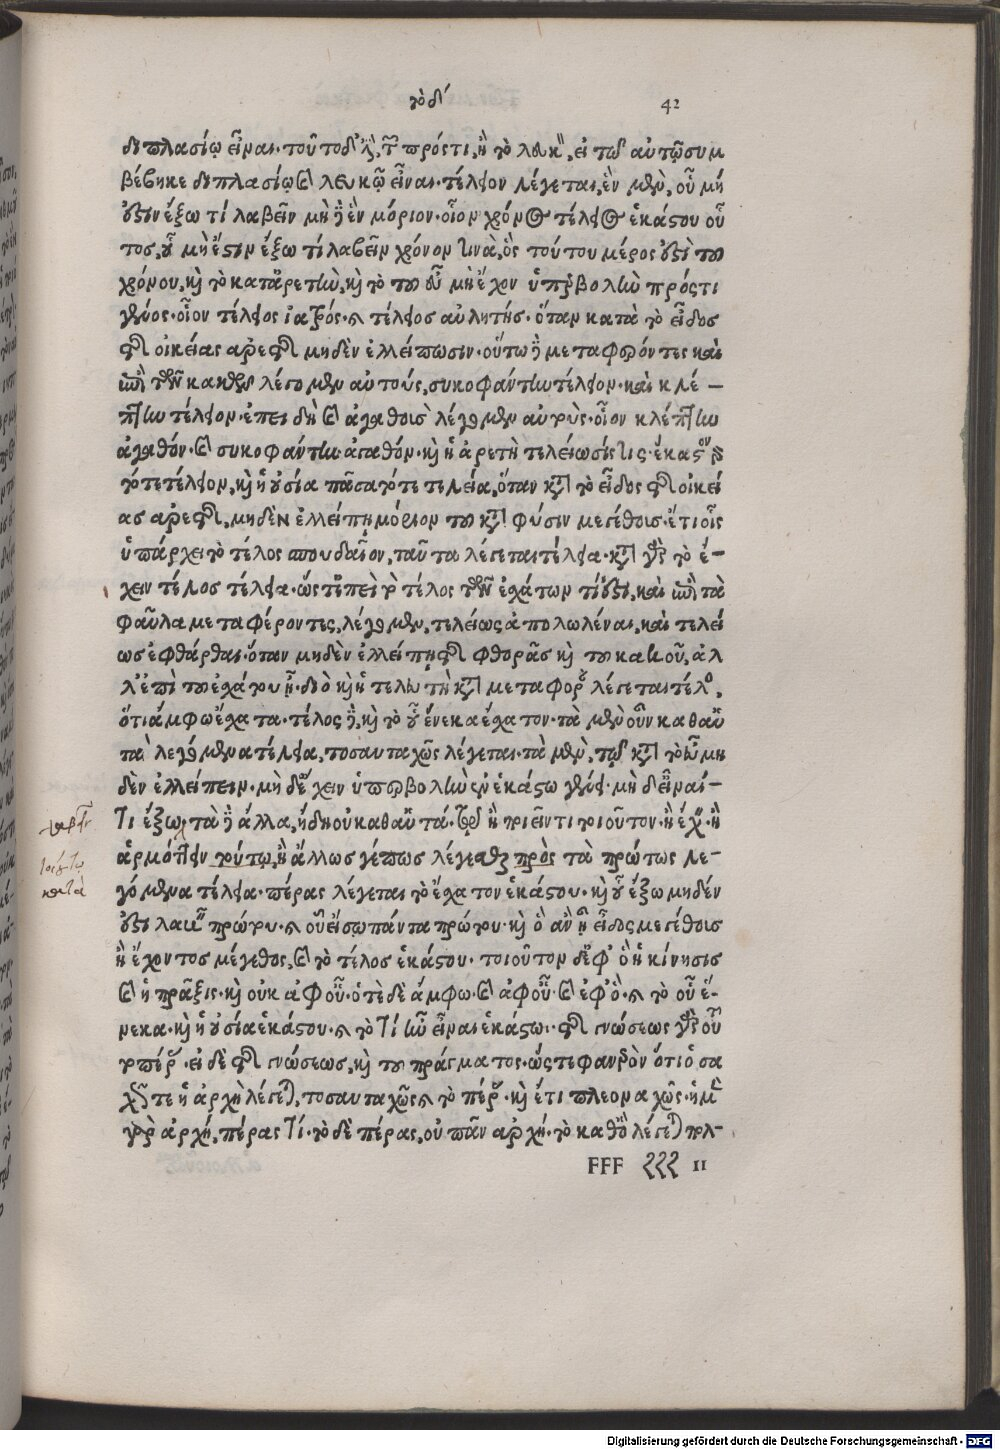 τὸ δ΄ 42
διπλασίῳ εἶναι. τοῦτο δ' πρός τι, ἢ τὸ λευκ, εἰ τῷ αὐτῷ συμ
βέβηκε διπλασίῳ καὶ λευκῷ εἶναι. τέλειον λέγεται, ἓν μὲν, οὗ μὴ
ἔστιν ἔξω τι λαβεῖν μηδὲ ἓν μόριον. οἷον χρόνος τέλειος ἑκάστου οὗ
τος, οὗ μὴ ἔστιν ἔξω τὶ λαβεῖν χρόνον τινὰ, ὃς τούτου μέρος ἐστὶ τοῦ
χρόνου, καὶ τὸ κατ' ἀρετὴν, καὶ τὸ τοῦ εὖ μὴ ἔχον ὑπερβολὴν πρός τι
γένος. οἷον τέλειος ἰατρός. καὶ τέλειος αὐλητής. ὅταν κατὰ τὸ εἶδος
τῆς οἰκείας ἀρετῆς μηδὲν ἐλλείπωσιν. οὕτω δὲ μεταφέροντες καὶ
ἐπὶ τῶν κακῶν λέγομεν αὐτοὺς, συκοφάντην τέλειον. καὶ κλέ –
πτην τέλειον. ἐπειδὴ καὶ ἀγαθοὺς λέγομεν αὐτούς. οἷον κλέπτην
ἀγαθόν. καὶ συκοφάντην ἀγαθόν. καὶ ἡ ἀρετὴ τελείωσίς τις. ἕκαστον γὰρ
τότε τέλειον, καὶ ἡ οὐσία πᾶσα τότε τελεία, ὅταν κατὰ τὸ εἶδος τῆς οἰκεί
ας ἀρετῆς, μηδὲν ἐλλείπῃ μόριον τοῦ κατὰ φύσιν μεγέθους. ἔτι οἷς
ὑπάρχει τὸ τέλος σπουδαῖον, ταῦτα λέγεται τέλεια. κατὰ γὰρ τὸ ἔ–
χειν τέλος τέλεια. ὥστ' ἐπεὶ τὸ τέλος τῶν ἐσχάτων τί ἐστι, καὶ ἐπὶ τὰ
φαῦλα μεταφέροντες, λέγομεν, τελείως ἀπολωλέναι, καὶ τελεί
ως ἐφθάρθαι. ὅταν μηδὲν ἐλλείπῃ τῆς φθορᾶς καὶ τοῦ κακοῦ, ἀλ
λ' ἐπὶ τοῦ ἐσχάτου ᾖ. διὸ καὶ ἡ τελευτὴ κατὰ μεταφορὰν λέγεται τέλος,
ὅτι ἄμφω ἔσχατα. τέλος δὲ, καὶ τὸ οὗ ἕνεκα ἔσχατον. τὰ μὲν οὖν καθ' αὑ
τὰ λεγόμενα τέλεια, τοσαυταχῶς λέγεται. τὰ μὲν, τῷ κατὰ τὸ εὖ μη
δὲν ἐλλείπειν. μηδ' ἔχειν ὑπερβολὴν ἐν ἑκάστῳ γένει. μηδ' εἶναί–
τι ἔξω, τὰ δὲ ἄλλα, ἤδη οὐ καθ' αὑτά. τῷ ἢ ποιεῖν τι τοιοῦτον. ἢ ἔχειν. ἢ
ἁρμόττειν τούτῳ, ἢ ἄλλως γέ πως λέγεσθαι πρὸς τὰ πρώτως λε–
γόμενα τέλεια. πέρας λέγεται τὸ ἔσχατον ἑκάστου. καὶ οὗ ἔξω μηδέν
ἐστι λαβεῖν πρώτου. καὶ οὗ εἴσω πάντα πρώτου. καὶ ὃ ἂν ᾖ εἶδος μεγέθους
ἢ ἔχοντος μέγεθος, καὶ τὸ τέλος ἑκάστου. τοιοῦτον δ' ἐφ' ὃ ἡ κίνησις
καὶ ἡ πρᾶξις. καὶ οὐκ ἀφ' οὗ. ὁτὲ δὲ ἄμφω. καὶ ἀφ' οὗ. καὶ ἐφ' ὅ. καὶ τὸ οὗ ἕ–
νεκα. καὶ ἡ οὐσία ἑκάστου. καὶ τὸ τί ἦν εἶναι ἑκάστῳ. τῆς γνώσεως γὰρ οὗ
το πέρας. εἰ δὲ τῆς γνώσεως, καὶ τοῦ πράγματος. ὥστε φανερὸν ὅτι ὁσα
χῶς τε ἡ ἀρχὴ λέγεται, τοσαυταχῶς καὶ τὸ πέρας. καὶ ἔτι πλεοναχῶς. ἡ μὲν
γὰρ ἀρχή, πέρας τί. τὸ δὲ πέρας, οὐ πᾶν ἀρχή. τὸ καθ' ὃ λέγεται πολ–
FFF ξξξ II
Digitalisierung gefördert durch die Deutsche Forschungsgemeinschaft - DFG